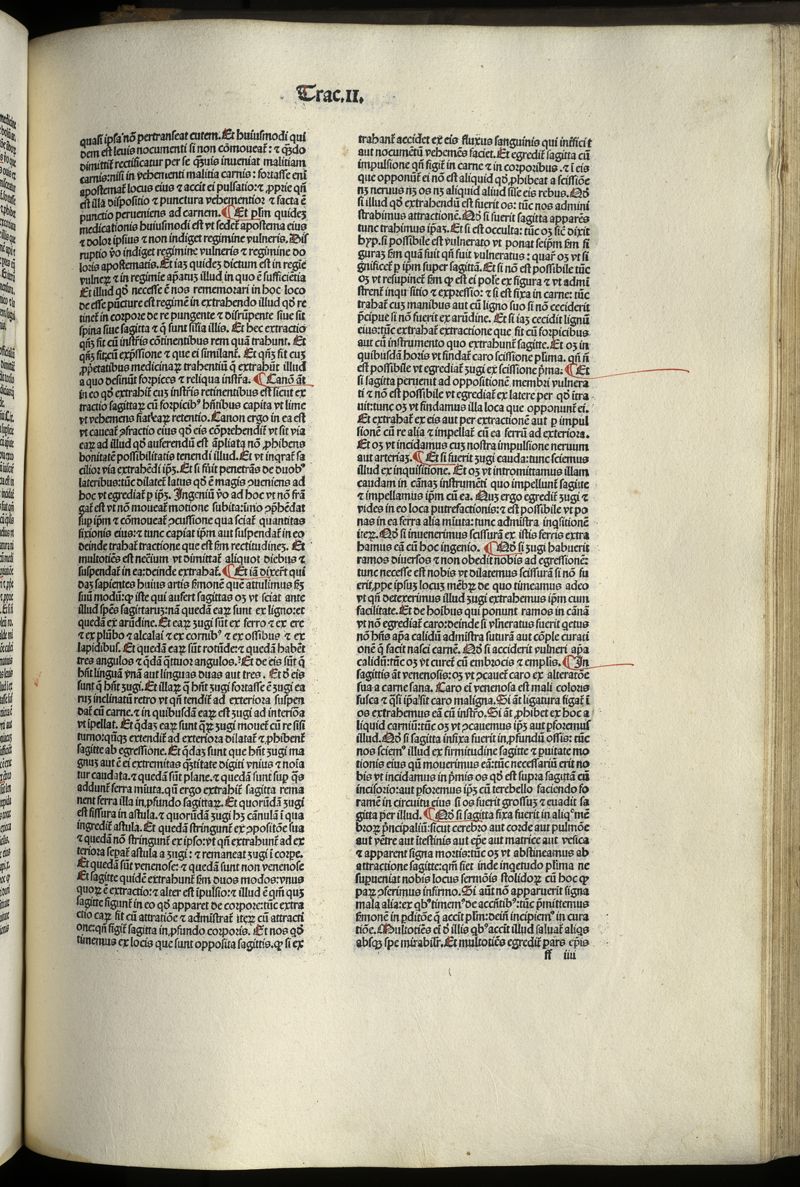 Trac.II.
quasi ipsa nō pertranseat cutem. Et huiusmodi qui
dem est leuis nocumenti si non cōmoueat̄: ⁊ qn̄do
dimittit̄ rectificatur per se q̄uis inueniat malitiam
carnis: nisi in vehementi malitia carnis: fortasse eni
apostemat̄ locus eius ⁊ accit ei pulsatio: ⁊ ꝓprie qn̄
est illa dispositio ⁊ punctura vehementior ⁊ facta ē
punctio perueniens ad carnem. ¶ Et plīm quidez
medicationis huiusmodi est vt sedet̄ apostema eius
⁊ dolor ipsius ⁊ non indiget regimine vulneris. Dis
ruptio ṽo indiget regimine vulneris ⁊ regimine do
loris apostematis. Et iaz quidez dictum est in regīe
vulneꝝ ⁊ in regimīe apatuz illud in quo ē sufficiētia
Et illud qd̄ necesse ē nos rememorari in hoc loco
de esse pūcture est regimē in extrahendo illud qd̄ re
tinet̄ in corpore de re pungente ⁊ disrūpente siue sit
spina siue sagitta ⁊ q̄ sunt silīa illis. Et hec extractio
qn̄qз fit cū instrīs cōtinentibus rem quā trahunt. Et
qn̄qз fit cū exp̄ssione ⁊ que ei similant̄. Et qn̄qз fit cuz
ꝓprietatibus medicinaꝝ trahentiū q̄ extrahūt illud
a quo desinūt forpices ⁊ reliqua instr̄a. ¶ Canō āt
in eo qd̄ extrahit̄ cuz instrīs retinentibus est sicut ex
tractio sagittaꝝ cū forpicibꝰ hn̄tibus capita vt lime
vt vehemens fiat eaꝝ retentio. Canon ergo in ea est
vt caueat̄ ꝯfractio eius qd̄ eis cōprehendit̄ vt sit via
eaꝝ ad illud qd̄ auferendū est āpliata nō ꝓhibens
bonitatē possibilitatis tenendi illud. Et vt inqrat̄ fa
cilior via extrahēdi ipz. Et si fuit penetrās de duobꝰ
lateribus: tūc dilatet̄ latus qd̄ ē magis ꝯueniens ad
hoc vt egrediat̄ p ipz. Ingeniū ṽo ad hoc vt nō frā
gat̄ est vt nō moueat̄ motione subita: imo ꝯphēdat̄
sup ipm ⁊ cōmoueat̄ ꝓcussione qua sciat̄ quantitas
fixionis eius: ⁊ tunc capiat̄ ipm aut suspendat̄ in eo
deinde trahat̄ tractione que est fm rectitudinez. Et
multotiēs est necium vt dimittat̄ aliquot diebus ⁊
suspendat̄ in ea: deinde extrahat̄. ¶ Et iā dixer̄t qui
daz sapientes huius artis sīmonē que attulimus fz
suū modū: ꝙ iste qui aufert sagittas oз vt sciat ante
illud sp̄es sagittarū: nā quedā eaꝝ sunt ex ligno: et
quedā ex arūdine. Et eaꝝ зugi sūt ex ferro ⁊ ex ere
⁊ ex plūbo ⁊ alcalai ⁊ ex cornibꝰ ⁊ ex ossibus ⁊ ex
lapidibus. Et quedā eaꝝ sūt rotūde: ⁊ quedā habēt
tres angulos ⁊ qdā q̄ttuor angulos. Et de eis sūt q̄
hn̄t linguā vnā aut linguas duas aut tres. Et ð eis
sunt q̄ hn̄t зugi. Et illaꝝ q̄ hn̄t зugi fortasse ē зugi ea
rūз inclinatū retro vt qn̄ tendit̄ ad exteriora suspen
dat̄ cū carne. ⁊ in quibusdā eaꝝ est зugi ad interiōa
vt ipellat̄. Et qdas eaꝝ sunt qꝝ зugi mouet̄ cū re sīsi
turno: qn̄qз extendit̄ ad exteriora dilatat̄ ⁊ ꝓhibent̄
sagitte ab egressione. Et qdaз sunt que hn̄t зugi ma
gnuз aut ē ei extremitas q̄ntitate digiti vnius ⁊ noīa
tur caudata. ⁊ quedā sūt plane. ⁊ quedā sunt sup q̄s
addunt̄ ferra mīuta. qn̄ ergo extrahit̄ sagitta rema
nent ferra illa in ꝓfundo sagittaꝝ. Et quorūdā зugi
est fissura in astula. ⁊ quorūdā зugi hз cānulā ī qua
ingredit̄ astula. Et quedā stringunt̄ ex ꝯpositōe sua
⁊ quedā nō stringunt̄ ex ipso: vt qn̄ extrahunt̄ ad ex
teriora sepat̄ astula a зugi: ⁊ remaneat зugi ī corpe.
Et quedā sūt venenose: ⁊ quedā sunt non venenose
Et sagitte quidē extrahunt̄ fm duos modos: vnus
quoꝝ ē extractio: ⁊ alter est ipulsio: ⁊ illud ē qm̄ qn̄з
sagitte figunt̄ in eo qd̄ apparet de corpore: tūc extra
ctio eaꝝ fit cū attratiōe ⁊ admīstrat̄ iteꝝ cū attracti
one: qn̄ figit̄ sagitta in ꝓfundo corporis. Et nos qn̄
timemus ex locis que sunt opposita sagittis. ꝙ si ex
trahant̄ accidet ex eis fluxus sanguinis qui interficit
aut nocumētū vehemēs faciet. Et egredit̄ sagitta cū
impulsione qn̄ figit̄ in carne ⁊ in corporibus. ⁊ ī eis
que opponūt̄ ei nō est aliquid qd̄ ꝓhibeat a scissiōe
nз neruus nз os nз aliquid aliud sīle eis rebus. Qd̄
si illud qd̄ extrahendū est fuerit os: tūc nos admini
strabimus attractionē. Qd̄ si fuerit sagitta apparēs
tunc trahimus ipaз. Et si est occulta: tūc oз sic̄ dixit
hyp. si possibile est vulnerato vt ponat seipm fm fi
guraз fm quā fuit qn̄ fuit vulneratus: quar̄ oз vt si
gnificet̄ p ipm super sagittā. Et si nō est possibile tūc
oз vt resupinet̄ fm ꝙ est ei pōle ex figura ⁊ vt admī
strent̄ inqui sitio ⁊ expressio: ⁊ si est fixa in carne: tūc
trahat̄ cuз manibus aut cū ligno suo si nō ceciderit
p̄cipue si nō fuerit ex arūdine. Et si iaз cecidit lignū
eius: tūc extrahat̄ extractione que fit cū forpicibus
aut cū instrumento quo extrahunt̄ sagitte. Et oз in
quibusdā horis vt findat̄ caro scissione plīma. qn̄ n̄
est possibile vt egrediat̄ зugi ex scissione pn̄a. ¶ Et
si sagitta peruenit ad oppositionē membri vulnera
ti ⁊ nō est possibile vt egrediat̄ ex latere per qd̄ itra
uit: tunc oз vt findamus illa loca que opponunt̄ ei.
Et extrahat̄ ex eis aut per extractionē aut p impul
sionē cū re alia ⁊ impellat̄ cū ea ferrū ad exteriora.
Et oз vt incidamus cuз nostra impulsione neruum
aut arteriaз. ¶ Et si fuerit зugi cauda: tunc sciemus
illud ex inquisitione. Et oз vt intromittamus illam
caudam in cānaз instrumēti quo impellunt̄ sagitte
⁊ impellamus ipm cū ea. Quз ergo egredit̄ зugi ⁊
vides in eo loca putrefactionis: ⁊ est possibile vt po
nas in ea ferra alia mīuta: tunc admistra inqsitionē
iteꝝ. Qd̄ si inuenerimus scissurā ex istis ferris extra
hamus eā cū hoc ingenio. ¶ Qd̄ si зugi habuerit
ramos diuersos ⁊ non obedit nobis ad egressionē:
tunc necesse est nobis vt dilatemus scissurā si nō fu
erit ꝓpe ipsuз locuз mēbꝝ de quo timeamus adeo
vt qn̄ detexerimus illud зugi extrahemus ipm cum
facilitate. Et de hoībus qui ponunt ramos in cānā
vt nō egrediat̄ caro: deinde si vlneratus fuerit getus
nō hn̄s apā calidū admistra suturā aut cōple curati
onē q̄ facit nasci carnē. Qd̄ si acciderit vulneri apā
calidū: tūc oз vt curet̄ cū embrocis ⁊ emplis. ¶ In
sagittis āt venenosis: oз vt ꝯcauet̄ caro ex alteratōe
sua a carne sana. Caro eī venenosa est mali coloris
fusca ⁊ qsi ipa sit caro maligna. Si āt ligatura figat̄ ī
os extrahemus eā cū instro. Si āt ꝓhibet ex hoc a
liquid carniū: tūc oз vt ꝯcauemus ipз aut pforemus
illud. Qd̄ si sagitta infixa fuerit in ꝓfundū ossis: tūc
nos sciemꝰ illud ex firmitudine sagitte ⁊ puitate mo
tionis eius qn̄ mouerimus eā: tūc necessariū erit no
bis vt incidamus in p̄mis os qd̄ est supra sagittā cū
incisorio: aut pforemus ipз cū terebello faciendo fo
ramē in circuitu eius si os fuerit grossuз ⁊ euadit sa
gitta per illud. ¶ Qd̄ si sagitta fixa fuerit in aliqꝰ mē
broꝝ p̄ncipaliū: sicut cerebro aut corde aut pulmōe
aut vētre aut ītestinis aut epe aut matrice aut vesica
⁊ apparent signa mortis: tūc oз vt abstineamus ab
attractione sagitte: qm̄ fiet inde inqetudo plīma ne
supueniat nobis locus sermōis stolidoꝝ cū hoc ꝙ
paꝝ ꝓferimus infirmo. Si aūt nō apparuerit signa
mala alia: ex qbꝰ timemꝰ de accn̄tibꝰ: tūc p̄mittemus
sīmonē in pditōe q̄ accit plīm: deīn incipiemꝰ in cura
tiōe. Multotiēs eī ð illis qbꝰ accit illud saluat̄ aliqs
absqз spe mirabilr̄. Et multotiēs egredit̄ pars epīs
ff iiii